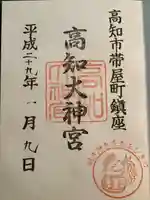 高知市帯屋町鎮座
高知大神宮
平成二十九年一月九日